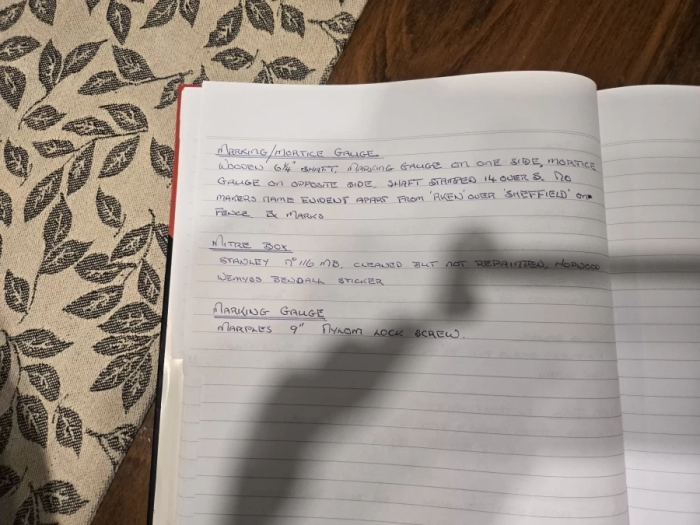 MARKING/MORTICE GAUGE
WOODEN 6¼" SHAFT, MARKING GAUGE ON ONE SIDE, MORTICE
GAUGE ON OPPOSITE SIDE. SHAFT STAMPED 14 OVER 5. NO
MAKERS NAME EVIDENT APART FROM 'AKEN' OVER 'SHEFFIELD' ON
FENCE & MARKS
MITRE BOX
STANLEY Nº 116 MB. CLEANED BUT NOT REPAINTED, NORWOOD
WEMYSS BENDALL STICKER
MARKING GAUGE
MARPLES 9" NYLON LOCK SCREW.